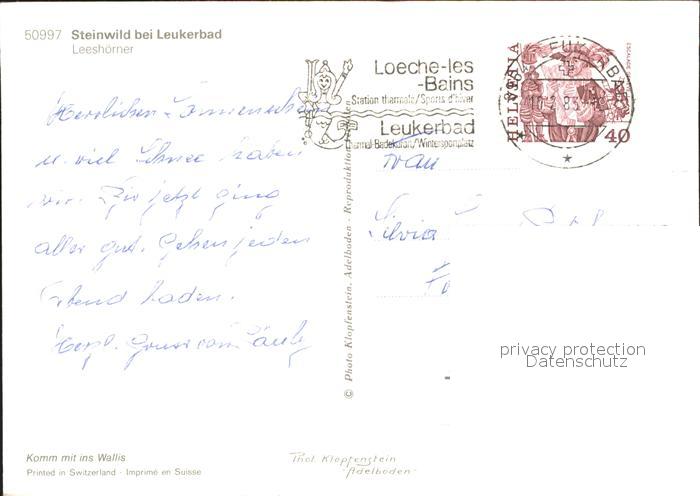 50997 Steinwild bei Leukerbad
Leeshörner
Loeche-les
-Bains
Station thermale/Sports d'hiver
Leukerbad
Thermal-Badekurort/Wintersportplatz
HELVETIA
40
Herrlichen Sonnenschein
u. viel Schnee haben
wir. Bis jetzt ging
alles gut. Gehen jeden
Abend baden.
Herzl. Gruss von
Frau
Silvia
© Photo Klopfenstein, Adelboden - Reproduktion
privacy protection
Datenschutz
Komm mit ins Wallis
Printed in Switzerland - Imprimé en Suisse
Phot. Klopfenstein
-Adelboden-